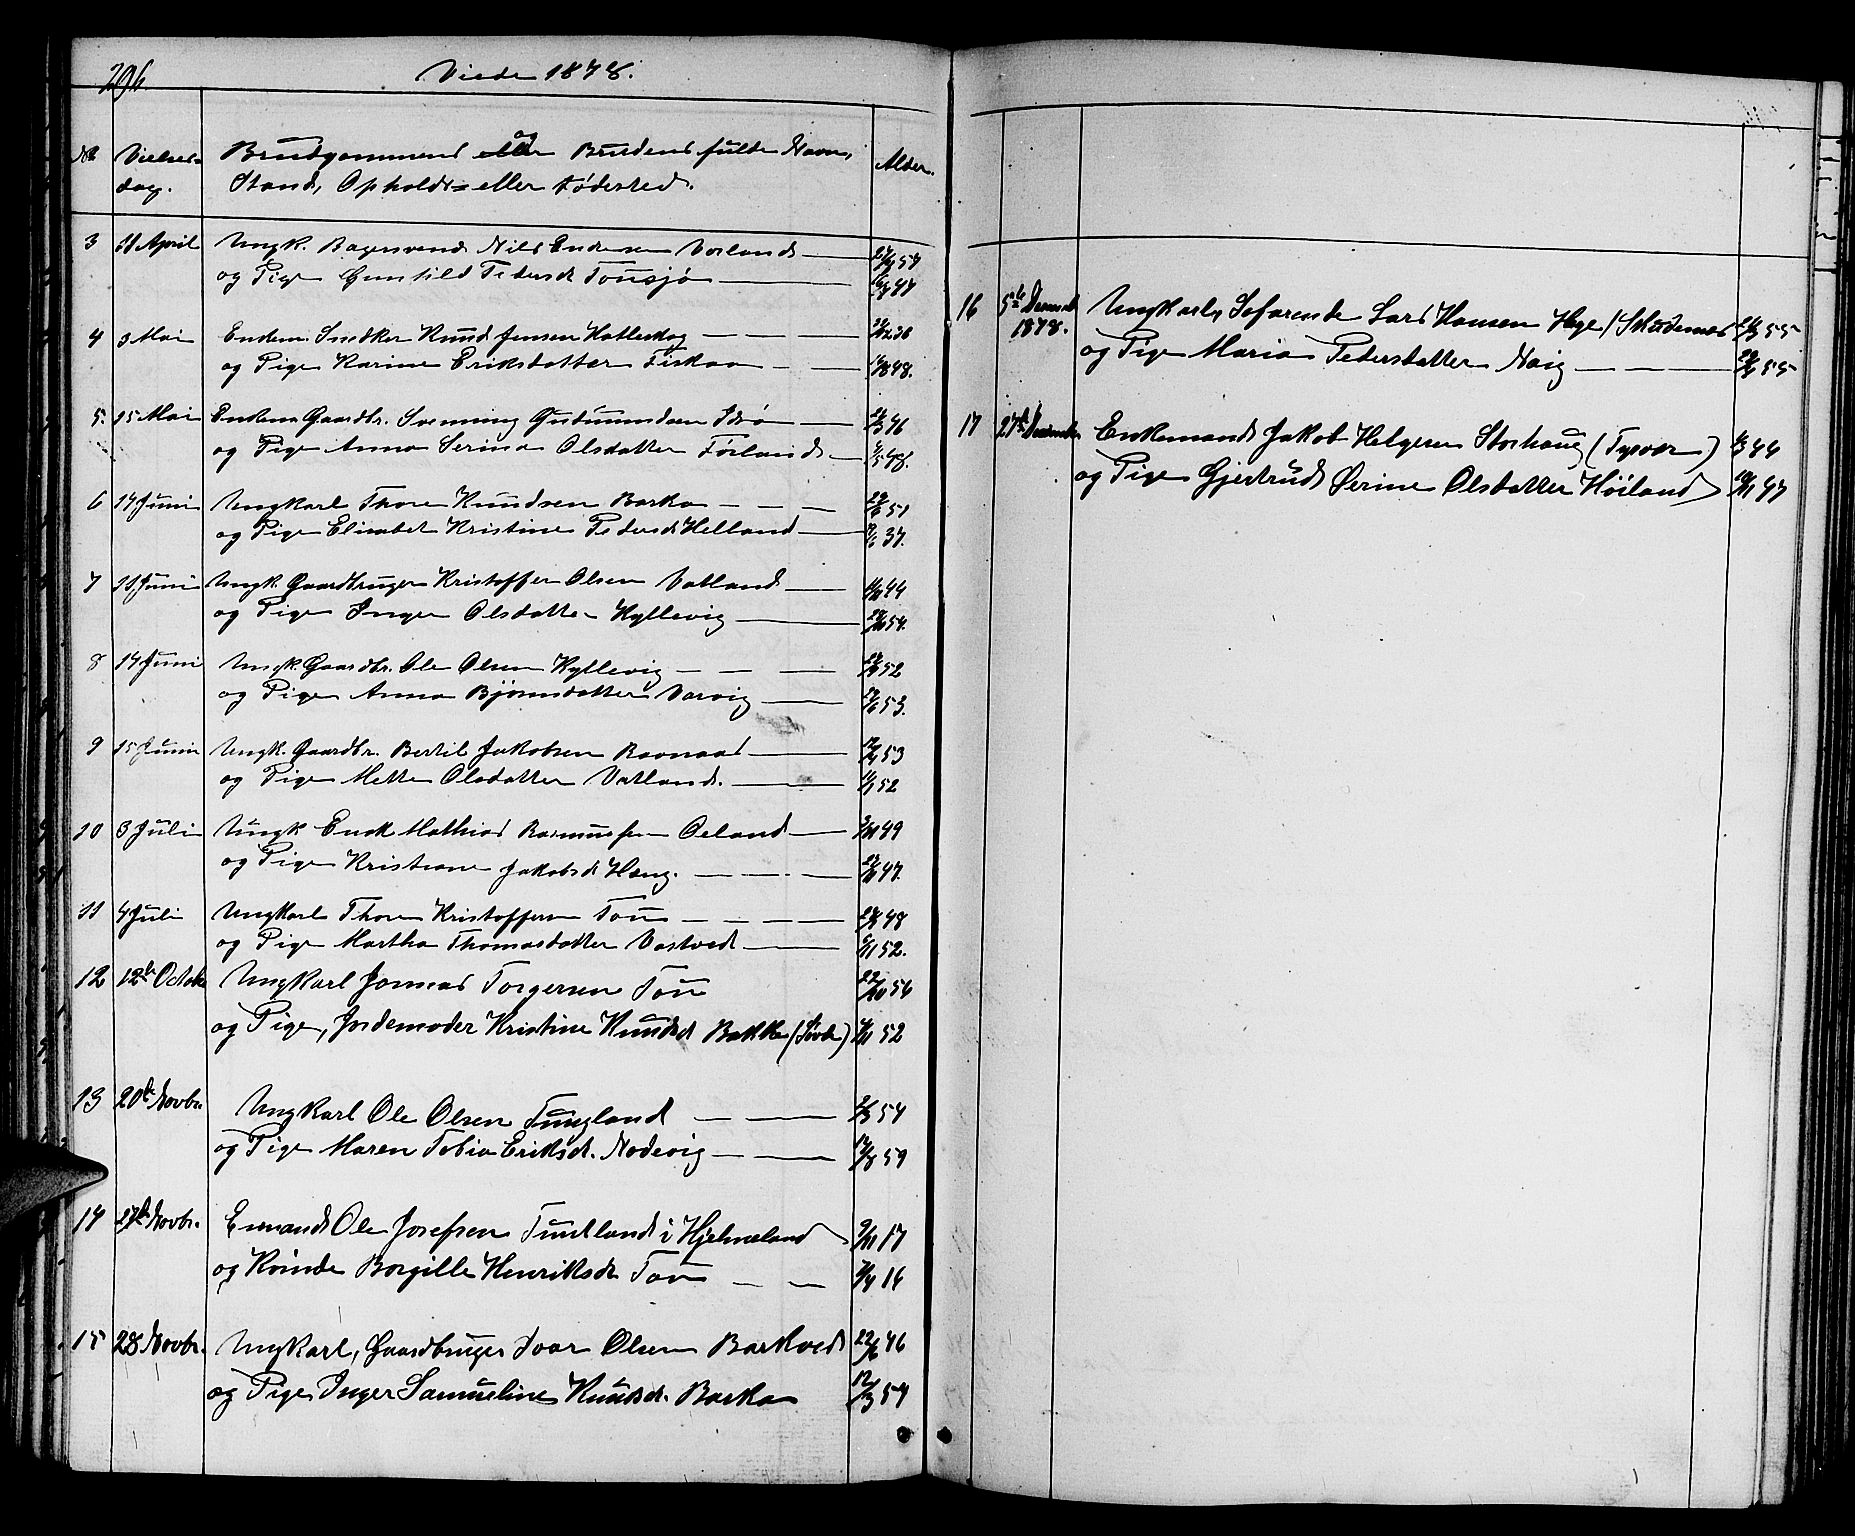 296
Viede 1878.
No Vielses- Brudgommens og Brudens fulde Navn, Alder.
dag. Stand, Opholds- eller Fødested.
3 11 April Ungk. Bagersvend Nils Endresen Vorland 57
og Pige Gunhild Pedersd Tousjø 47
4 3 Mai Enkem. Snedker Knud Jensen Hatleskog 38
og Pige Karine Eriksdatter Fiskaa 48.
5. 15 Mai Enkem Gaardbr. Svenning Gudmundsen 46
og Pige Anna Serina Olsdatter Førland 48.
6 14 Juni Ungkarl Thore Knudsen Barka 51
og Pige Elisabet Kristine Pedersd Helland 37.
7 11 Juni Ungk. Gaardbruger Kristoffer Olsen Vatland 44
og Pige Inger Olsdatter Hyllevig 54.
8 14 Juni Ungk. Gaardbr. Ole Olsen Hyllevig 52
og Pige Anna Bjørnsdatter Varvig 53.
9 15 Juni Ungk. Gaardbr. Bertil Jakobsen Ravnaas 53
og Pige Mette Olsdatter Vatland. 52
10 3 Juli Ungk Enok Mathias Rasmussen Øeland 49
og Pige Kristiane Jakobsd Haug. 47.
11 4 Juli Ungkarl Thore Kristoffersen Tou 48
og Pige Martha Thomasdatter Vastved 52.
12 12te October Ungkarl Jonnas Torgersen Tou 22/10 54
og Pige, Jordemoder Kristine Knudsd Bakke 52
13 20de Novbr. Ungkarl Ole Olsen Tungland 54
og Pige Maren Tobia Eriksd. Nodevig 59
14 27de Novbr. Ole Josefsen Tuntland i Hjelmeland 9/11 17
og Kvinde Borgille Henriksd Tou 14
15 28 Novbr. Ungkarl, Gaardbruger Ivar Olsen Barkved 22/6 46
og Pige Inger Samueline Knudsd. Barka 12/3 57
16 5te December Ungkarl, Søfarende Lars Hansen Hege 55
1878. og Pige Maria Pedersdatter Naig 55
17 27de December Enkemand Jakob Helgesen Storhaug (Tysvær) 44
og Pige Gjertrud Serine Olsdatter Høiland 47